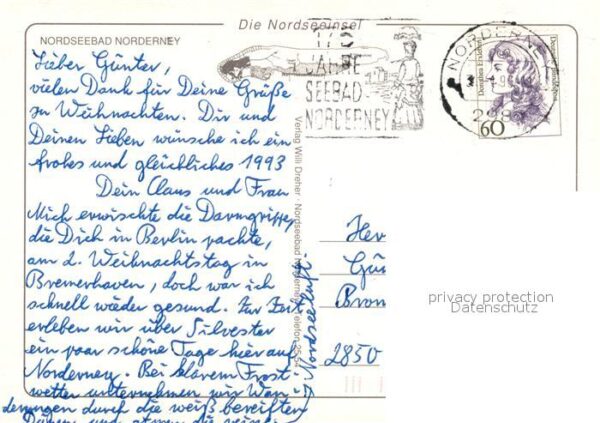 Die Nordseeinsel
NORDSEEBAD NORDERNEY
175
JAHRE
SEEBAD
NORDERNEY
NORDERNEY
298
Dorothea Erxleben
Deutsche Bundespost
60
Lieber Günter,
vielen Dank für Deine Grüße
zu Weihnachten. Dir und
Deinen Lieben wünsche ich ein
frohes und glückliches 1993
Dein Claus und Frau
Mich erwischte die Darmgrippe,
die Dich in Berlin packte,
am 2. Weihnachtstag in
Bremerhaven, doch war ich
schnell wieder gesund. Zur Zeit
erleben wir über Silvester
ein paar schöne Tage hier auf
Norderney. Bei klarem Frost-
wetter unternehmen wir Wan-
derungen durch die weiß bereiften
Dünen und atmen die reine
Nordseeluft.
Verlag Willi Dreher · Nordseebad Norderney · Telefon
Her
Gü
Brem
2850
privacy protection
Datenschutz